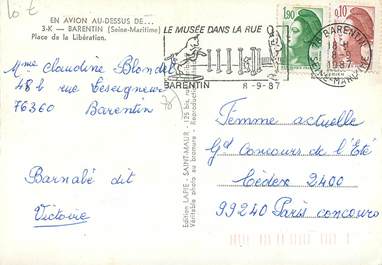 10 €
EN AVION AU-DESSUS DE...
3-K — BARENTIN (Seine-Maritime)
Place de la Libération.
LE MUSÉE DANS LA RUE
BARENTIN
8-9-87
1,90
0,10
BARENTIN
18 H
8-9
1987
SEINE-MARITIME
Mme Claudine Blondel
48 b rue Leseigneur
76360 Barentin
Barnabé dit
Victoire
Edition LAPIE - SAINT-MAUR
Véritable photo au bromure - Reproduction
Femme actuelle
Gd Concours de l'Eté
Cédex 2400
99240 Paris concours